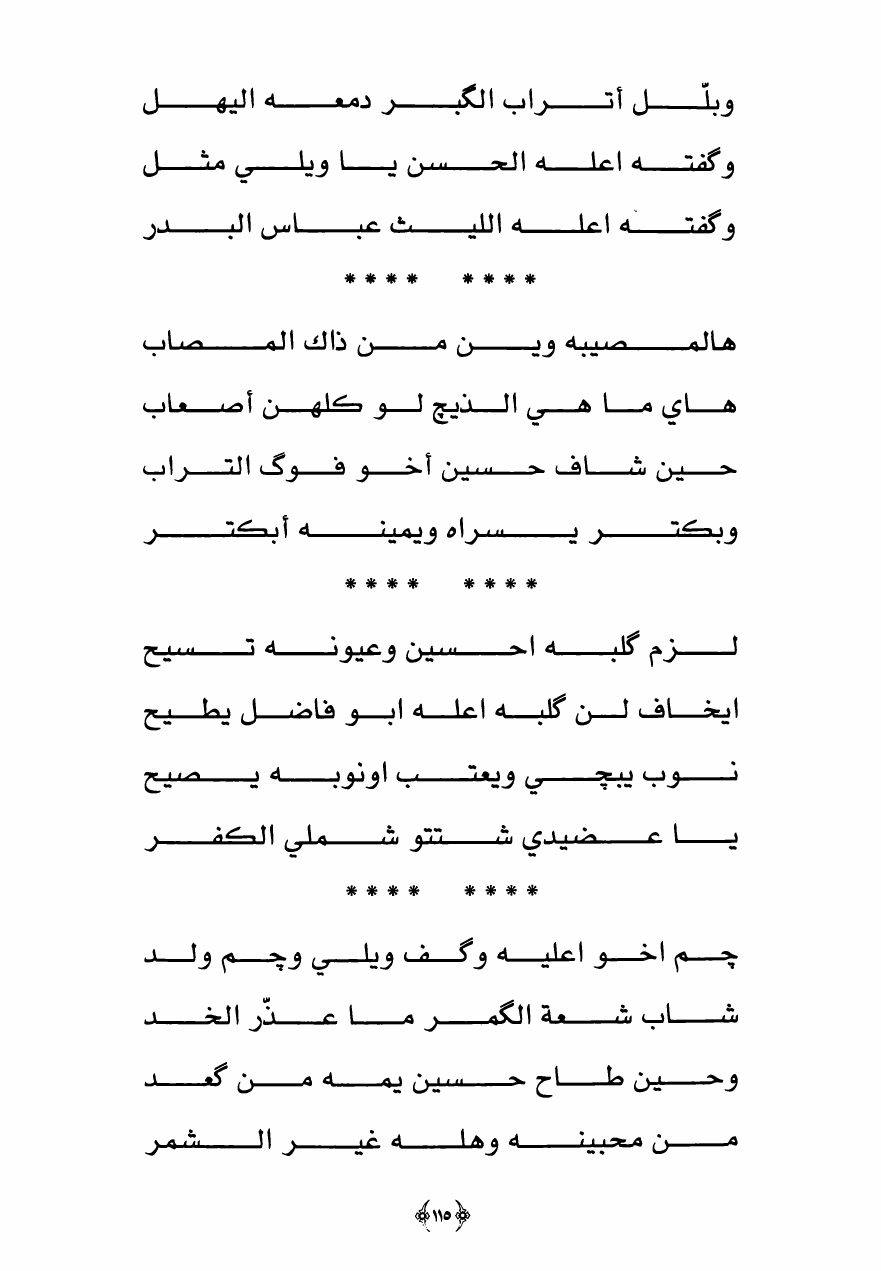 وبلّل أتراب الگبر دمعه اليهل
وگفته اعله الحسن يا ويلي مثل
وگفته اعله الليث عباس البدر
**** ****
هالمصيبه وين من ذاك المصاب
هاي ما هي الذيچ لو كلهن أصعاب
حين شاف حسين أخو فوگ التراب
وبكتر يسراه ويمينه أبكتر
**** ****
لزم گلبه احسين وعيونه تسيح
ايخاف لن گلبه اعله ابو فاضل يطيح
نوب يبچي ويعتب اونوبه يصيح
يا عضيدي شتتو شملي الكفر
**** ****
چم اخو اعليه وگف ويلي وچم ولد
شاب شعة الگمر ما عذّر الخد
وحين طاح حسين يمه من گعد
من محبينه وهله غير الشمر
﴿١١٥﴾